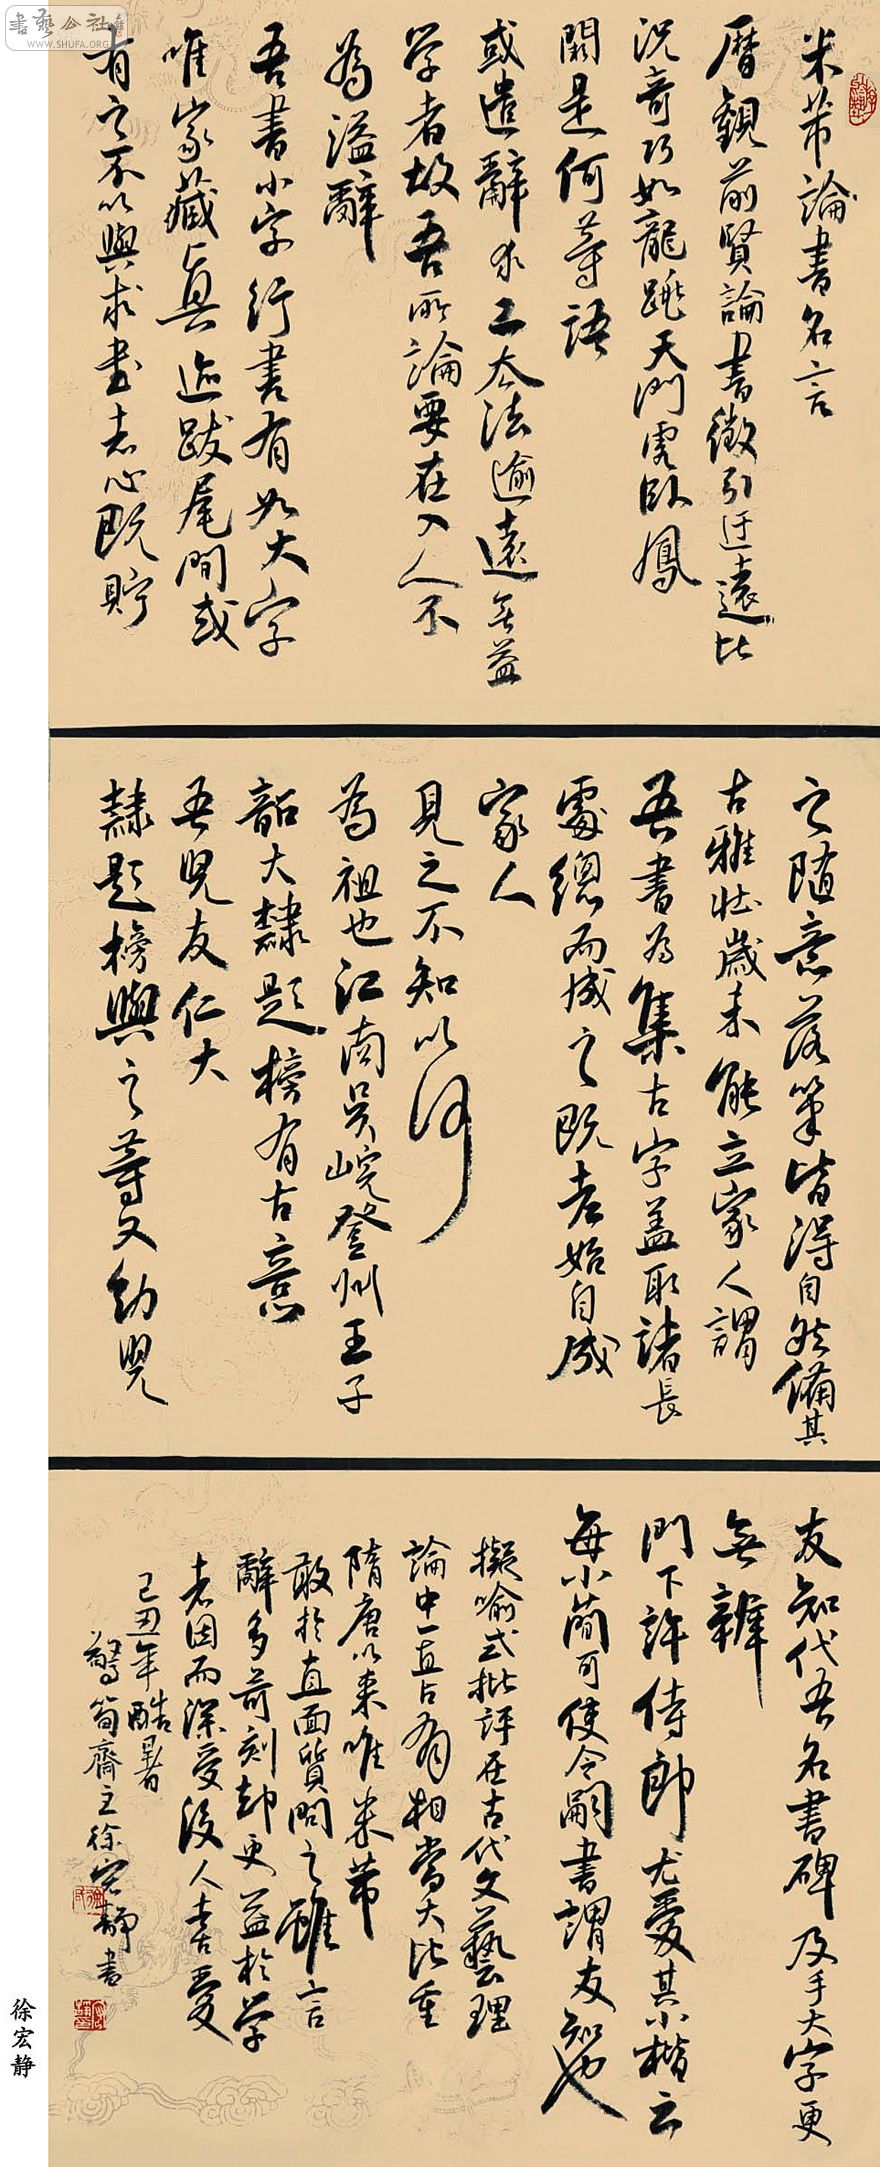 書藝公社
WWW.SHUFA.ORG
米芾論書名言
曆觀前賢論書徵引迂遠比
况奇巧如龍跳天门虎卧鳳
闕是何等語
或遣辭求工去法逾遠無益
学者故吾所論要在入人不
為溢辭
吾書小字行書有如大字
唯家藏真迹跋尾間或
有之不以與求書者心既貯
之随意落筆皆得自然備其
古雅壮歲未能立家人謂
吾書為集古字盖取諸長
處總而成之既老始自成
家人
見之不知以何
為祖也江南吴皖登州王子
韶大隸題榜有古意
吾児友仁大
隸題榜與之等又幼児
友知代吾名書碑及手大字更
無辨
门下許侍郎尤愛其小楷云
每小简可使令嗣書謂友知也
擬喻式批評在古代文藝理
論中一直占有相當大比重
隋唐以来唯米芾
敢於直面質問之雖言
辭多苛刻却更益於学
者因而深受後人喜愛
己丑年酷暑
筍齋主徐宏静書
徐宏静